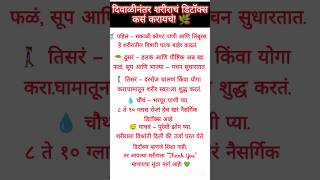 दिवाळीनंतर शरीराचं डिटॉक्स
कसं करायचं! 🌿
फळं, सूप आणि भाज्या – पचन सुधारतात.
पहिलं – सकाळी कोमट पाणी आणि लिंबूरस.
हे शरीरातील विषारी घटक बाहेर काढतं.
🥗 दुसरं – हलकं आणि पौष्टिक अन्न खा.
फळं, सूप आणि भाज्या – पचन सुधारतात.
🚶 तिसरं – दररोज चालणं किंवा योगा
करा.घामातून शरीर स्वतःला शुद्ध करतं.
💧 चौथं – भरपूर पाणी प्या.
८ ते १० ग्लास रोज! हेच खरं नैसर्गिक
डिटॉक्स आहे.
😴 पाचवं – पुरेशी झोप घ्या.
शरीराला विश्रांती दिली की ऊर्जा परत येते.
डिटॉक्स म्हणजे शिक्षा नाही,
तर आपल्या शरीराला "Thank You"
म्हणण्याचा सुंदर मार्ग आहे! 💚